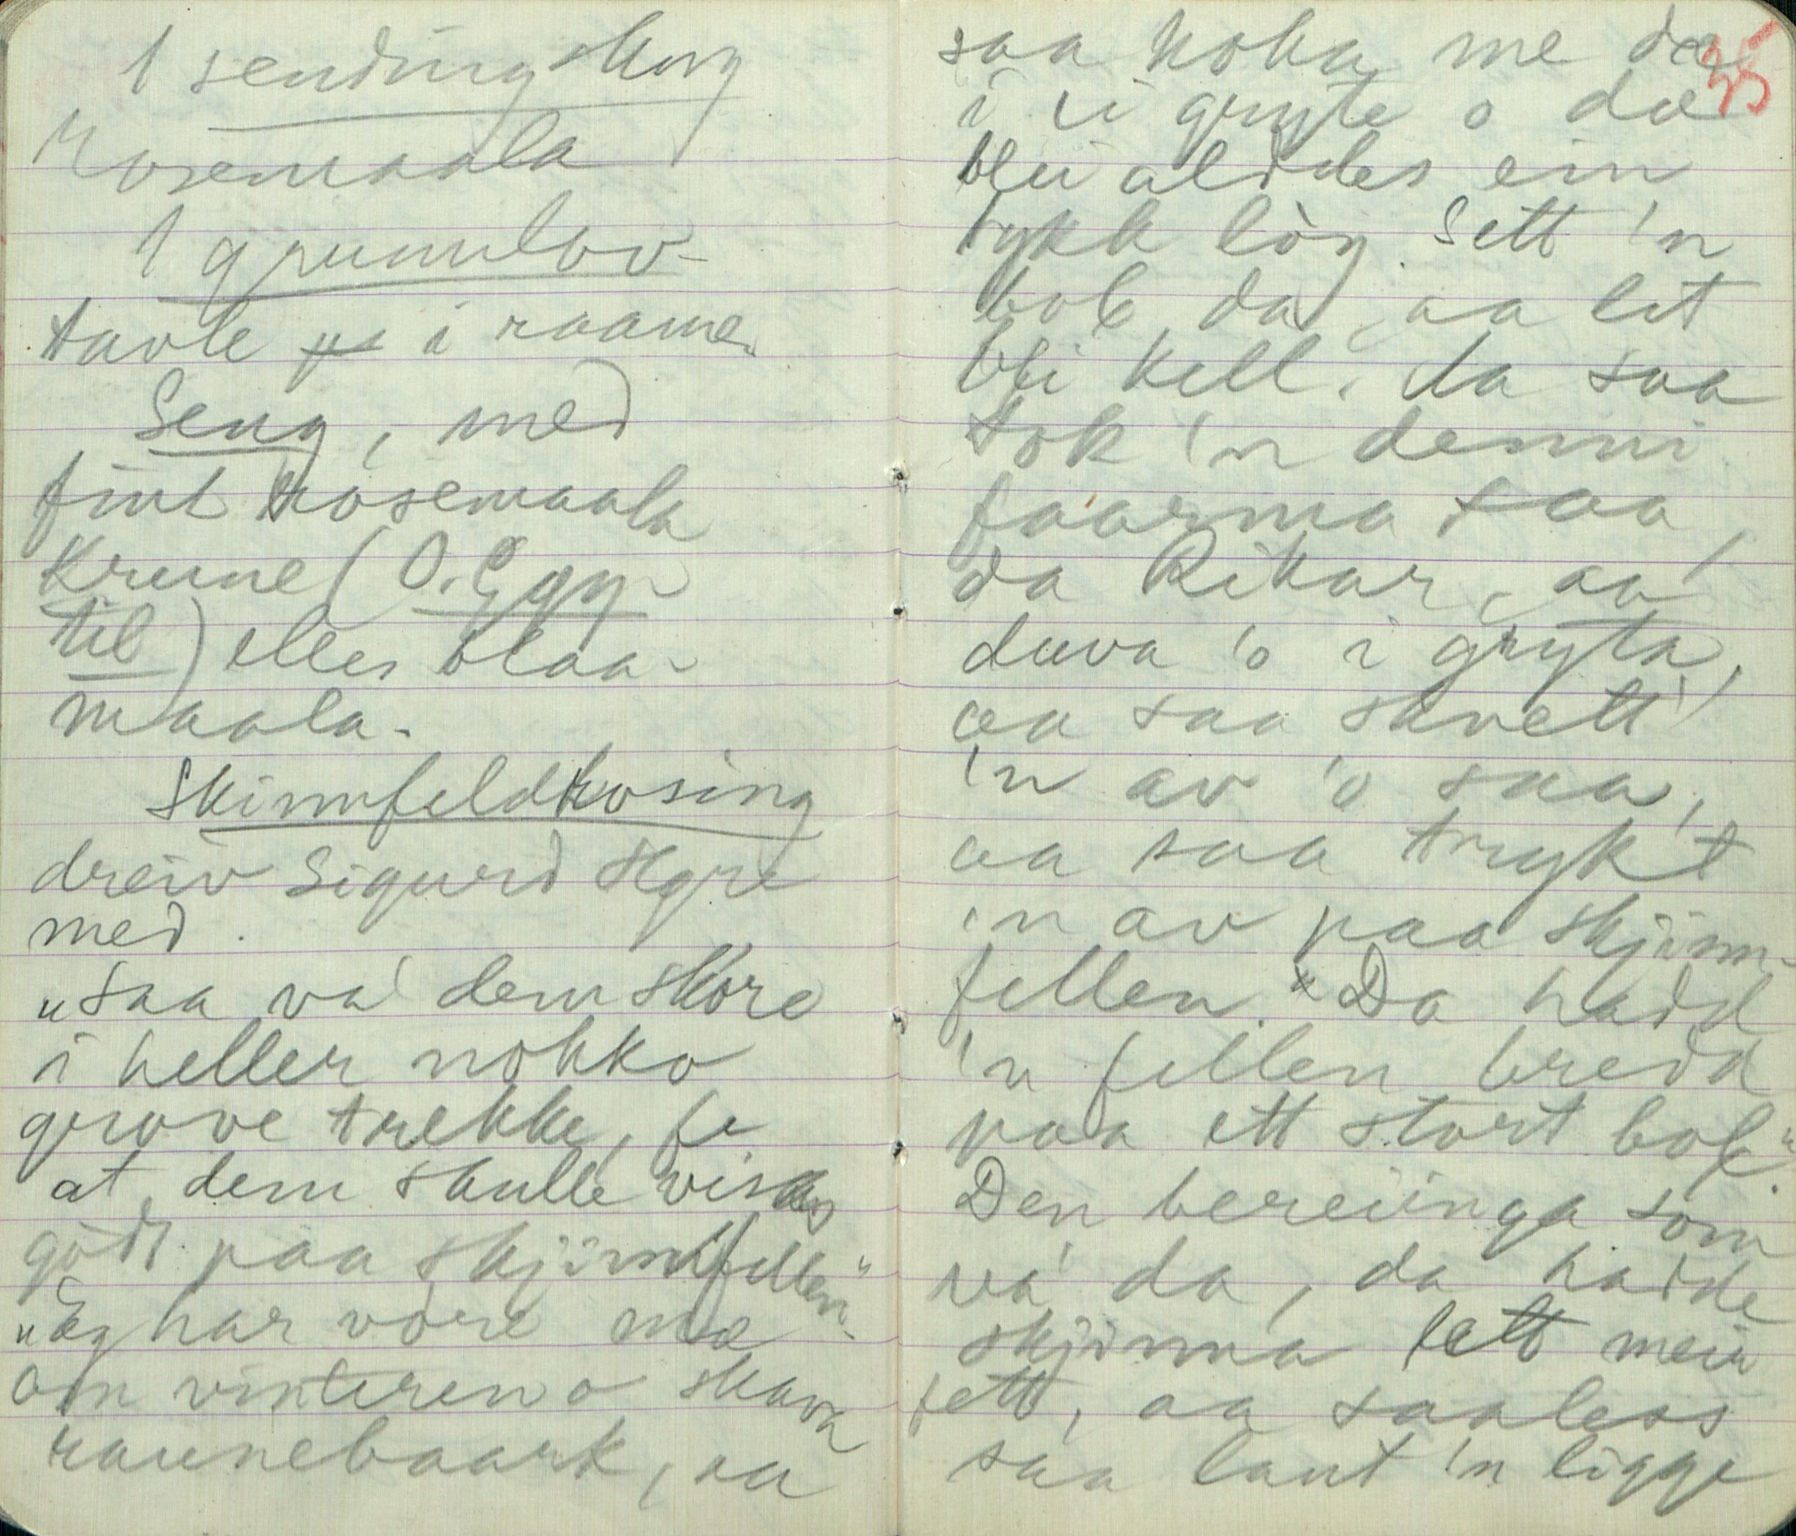 1 sending skrg
Rosemaala
1 grunnlov-
tavle i raame.
Seng, med
fint rosemaala
Krune (O. Egg-
til) elles blaa-
maala.
Skinnfeldrosing
dreiv Sigurd
med.
"saa va' dem skore
i heller nokko
grove trekke, fe
at dem skulle visas
godt paa skjinnfellen"
"Eg har vore me
om vinteren o skava
raunebaark, aa
35
saa koka me dæ
i ei gryte o dæ
blei aldeles ein
tykk lòg. Sett 'n
bob da, aa let
bli kell, da saa
tok 'n denni
faarma saa,
da Rikar, aa
duva 'o i gryta,
aa saa skvett
'n av 'o saa,
aa saa trykt
'n av paa skjinn-
fellen." "Da hadd
'n fellen bredd
paa ett stort bol".
Den bereiinga som
va' da, da hadde
skjinna lett mein
fett, aa saaless
saa laut 'n ligge